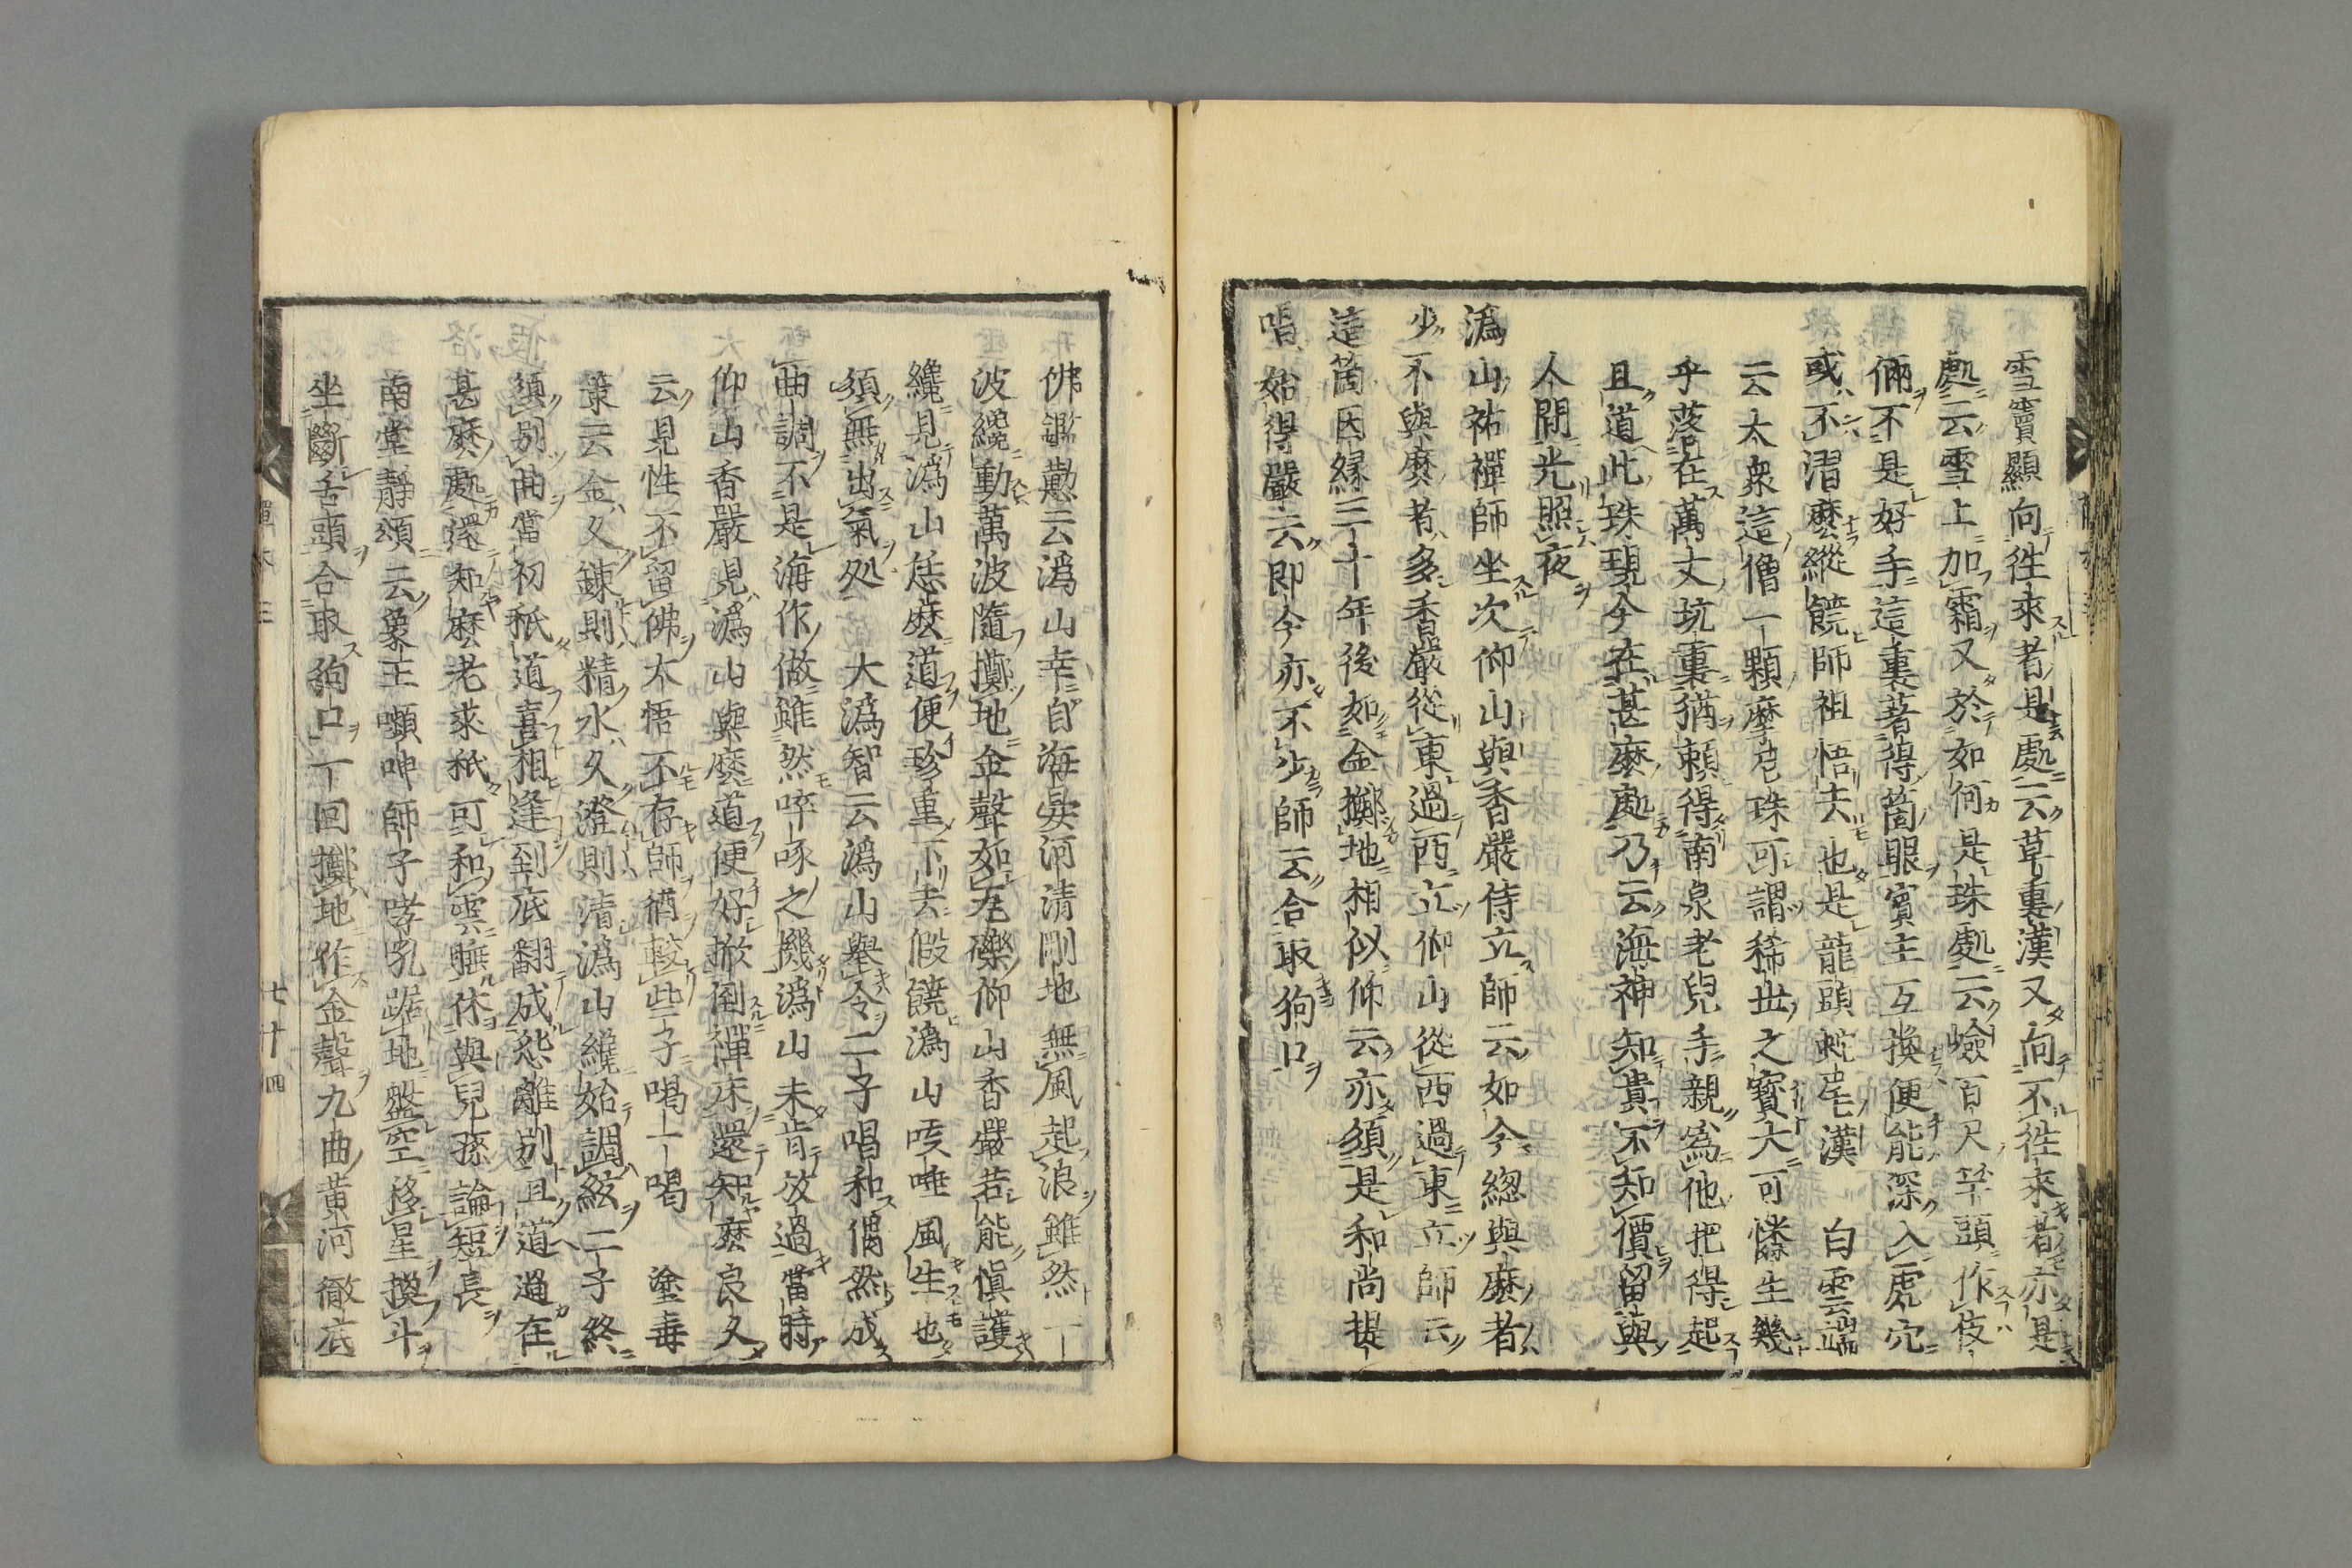 雪竇顯向徃來者是處云草裏漢又向不徃來者亦是
處云雪上加霜又於如何是珠處云嶮百尺竿頭作伎
倆不是好手這裏著得箇眼賓主互換便能深入虎穴
或不渻麼縱饒師祖悟去也是龍頭蛇尾漢　白雲端
云太衆這僧一顆摩尼珠可謂稀世之寶大可怜生幾
乎落在萬丈坑裏猶頼得南泉老兒手親為他把得起
且道此珠現今在甚麼處乃云海神知貴不知價留與
人間光照夜
溈山祐禪師坐次仰山與香嚴侍立師云如今緫與麼者
少不與麼者多香嚴從東過西立仰山從西過東立師云
這箇因縁三十年後如金擲地相似仰云亦須是和尚提
唱始得嚴云即今亦不少師云合取狗口
佛鑑懃云溈山幸自海晏河清剛地無風起浪雖然一
波纔動萬波隨擲地金聲如瓦礫仰山香嚴若能愼護
纔見溈山恁麼道便珍重下去假饒溈山咳唾風生也
須無出氣処　大溈智云溈山舉令二子唱和偶然成
曲調不是海作做雖然啐啄之機溈山未肯放過當時
仰山香嚴見溈山與麼道便好掀倒禪床還知麼良久
云見性不留佛大悟不存師猶較些子喝一喝　塗毒
策云金久鍊則精水久澄則清溈山纔始調絃二子終
須別曲當初秖道喜相逢到底翻成怨離別且道過在
甚麼處還知麼老來秖可和雲睡休與兒孫論短長
南堂靜頌云象王嚬呻師子哮吼踞地盤空移星換斗
坐斷舌頭合取狗口一回擲地作金聲九曲黄河徹底
七十四